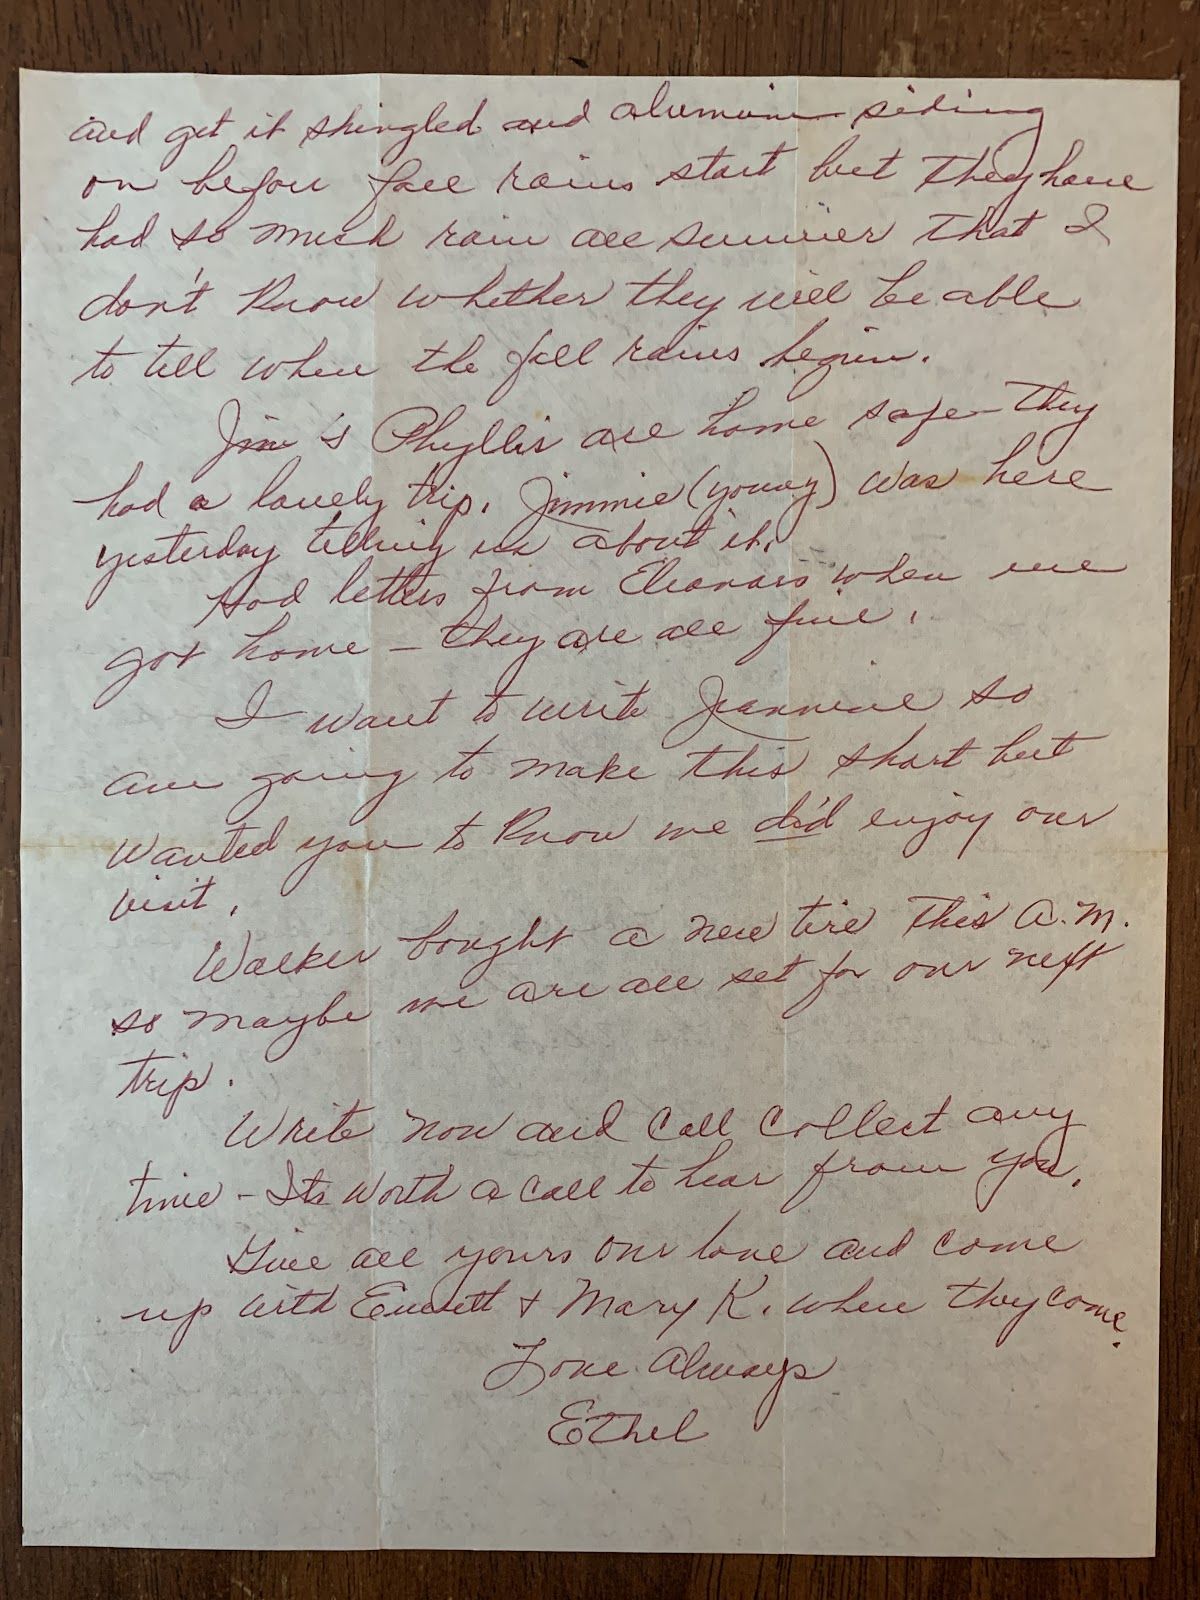 and get it shingled and aluminum siding
on before fall rains start but they have
had so much rain all summer that I
don't know whether they will be able
to tell when the fall rains begin.
Jim & Phyllis are home safe - they
had a lovely trip. Jimmie (young) was here
yesterday telling us about it.
Had letters from Eleanors when we
got home - they are all fine.
I want to write Jeannine so
am going to make this short but
wanted you to know we did enjoy our
visit.
Walker bought a new tire this A.M.
so maybe we are all set for our next
trip.
Write now and call collect any
time - Its worth a call to hear from you.
Give all yours our love and come
up with Everett & Mary K. when they come.
Love Always
Ethel